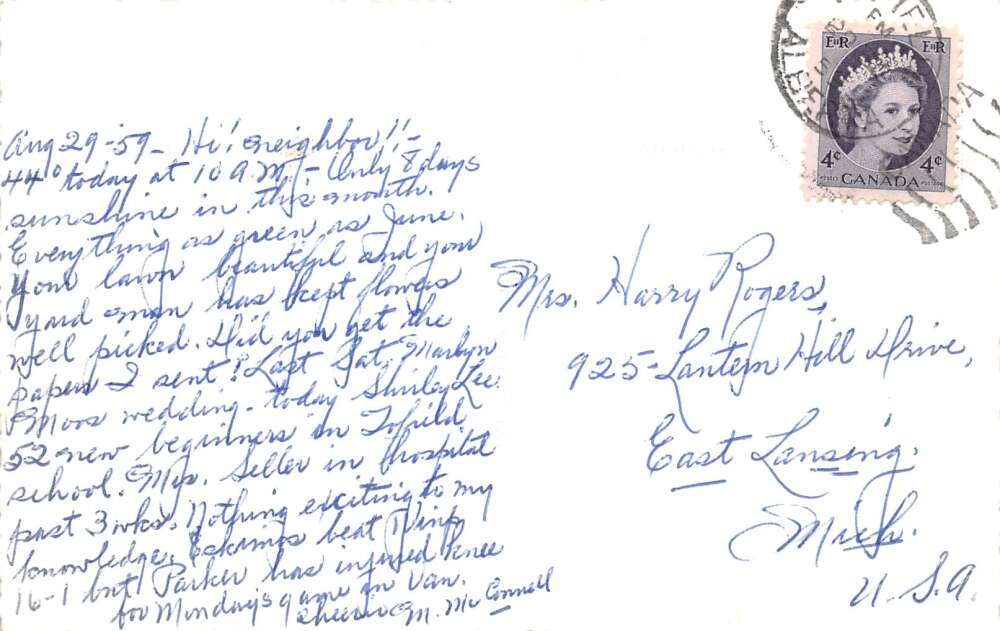 Aug 29-59- Hi! neighbor!!-
44° today at 10 A.M.- Only 8 days
sunshine in this month.
Everything as green as June.
Your lawn beautiful and your
yard man has kept flowers
well picked. Did you get the
papers I sent? Last Sat. Marlyn
Moos wedding- today Shirley Lee.
52 new beginners in Tofield
school. Mrs. Seller in hospital
past 3 wks. Nothing exciting to my
knowledge. Eskimos beat Winp
16-1 but Parker has injured knee
for Monday's game in Van.
Cheerio M. McConnell
Mrs. Harry Rogers,
925-Lantern Hill Drive,
East Lansing.
Mich.
U.S.A.
E II R E II R
4¢ 4¢
POSTES CANADA POSTAGE